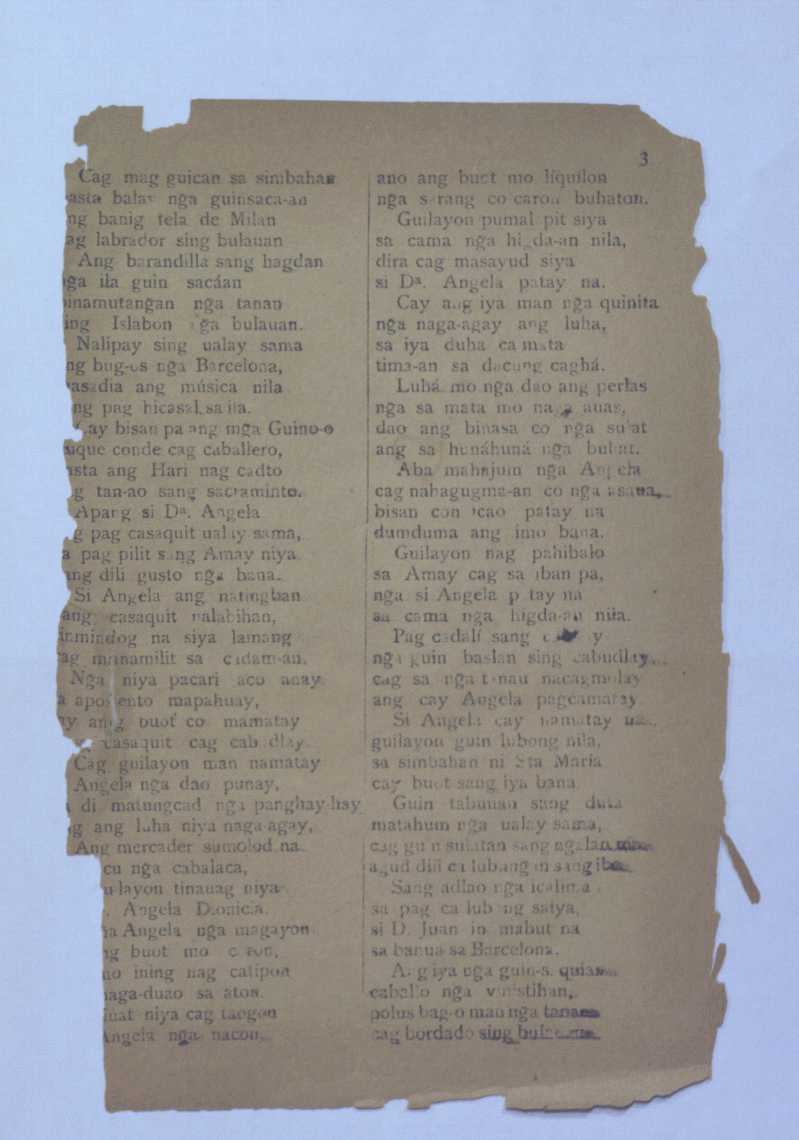 3
Cag mag guican sa simbahan
asta balay nga guinsaca-an
ng banig tela de Milan
ag labrador sing bulauan
Ang barandilla sang hagdan
ga ila guin sacáan
inamutangan nga tanan
ing Islabon nga bulauan.
Nalipay sing ualay sama
ng bug-os nga Barcelona,
asadia ang música nila
ng pag hicasal sa ila.
Cay bisan pa ang mga Guino-o
uque conde cag caballero,
asta ang Hari nag cadto
g tan-ao sang sacraminto.
Apang si Dª. Angela
g pag casaquit ualay sama,
a pag pilit sang Amay niya
ang dili gusto nga bana.
Si Angela ang natingban
ang casaquit nalabihan,
inmindog na siya lamang
ag manamilit sa cadam-an.
Nga niya pacari aco anay
a aposento mapahuay,
ay ang buot co mamatay
casaquit cag cabudlay.
Cag guilayon man namatay
Angela nga dao punay,
di matungcad nga panghay-hay
g ang luha niya naga-agay,
Ang mercader sumolod na
cu nga cabalaca,
ulayon tinauag niya
Angela Dionicia.
ga Angela nga magayon
ng buot mo caron,
no ining nag catipon
naga-duao sa aton.
niya cag taogon
Angela nga nacon,
ano ang buot mo liquilon
nga sarang co caron buhaton.
Guilayon pumalpit siya
sa cama nga higda-an nila,
dira cag masayud siya
si Dª. Angela patay na.
Cay ang iya man nga quinita
nga naga-agay ang luha,
sa iya duha ca mata
tima-an sa dacung caghá.
Luhá mo nga dao ang perlas
nga sa mata mo naga auas,
dao ang binasa co nga sulat
ang sa hunáhuná nga buhat.
Aba mahajum nga Angela
cag nahagugma-an co nga asaua,
bisan con icao patay na
dumduma ang imo bana.
Guilayon nag pahibalo
sa Amay cag sa iban pa,
nga si Angela patay na
sa cama nga higda-an nila.
Pag cadalí sang
nga guin baslan sing cabudlay,
cag sa nga tanan nacagmolay
ang cay Angela pagcamatay.
Si Angela cay namatay na
guilayon guin lubong nila,
sa simbahan ni Sta Maria
cay buot sang iya bana.
Guin tabunan sang duta
matahum nga ualay sama,
cag guin sulatan sang ngalan
agud dili ca lubangan sang iba.
Sang adlao nga icalima
sa pag ca lubung saiya,
si D. Juan in mabut na
sa banua sa Barcelona.
Ang iya nga
caballo nga vinistihan,
polus bag-o man nga tanan
cag bordado sing